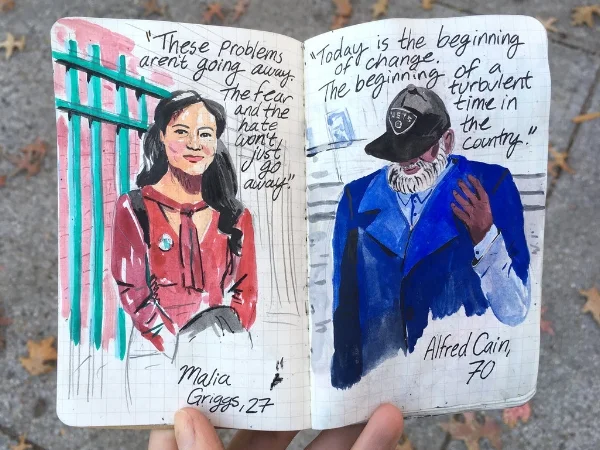 "These Problems
aren't going away.
The fear
and the
hate
won't
just
go
away."
Malia
Griggs, 27
"Today is the beginning
of change.
The beginning of a
turbulent
time in
the
country."
Alfred Cain,
70